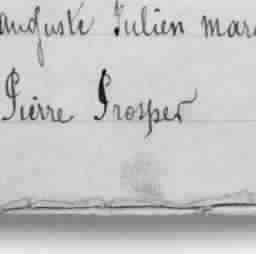 auguste Julien mar
Pierre Prosper